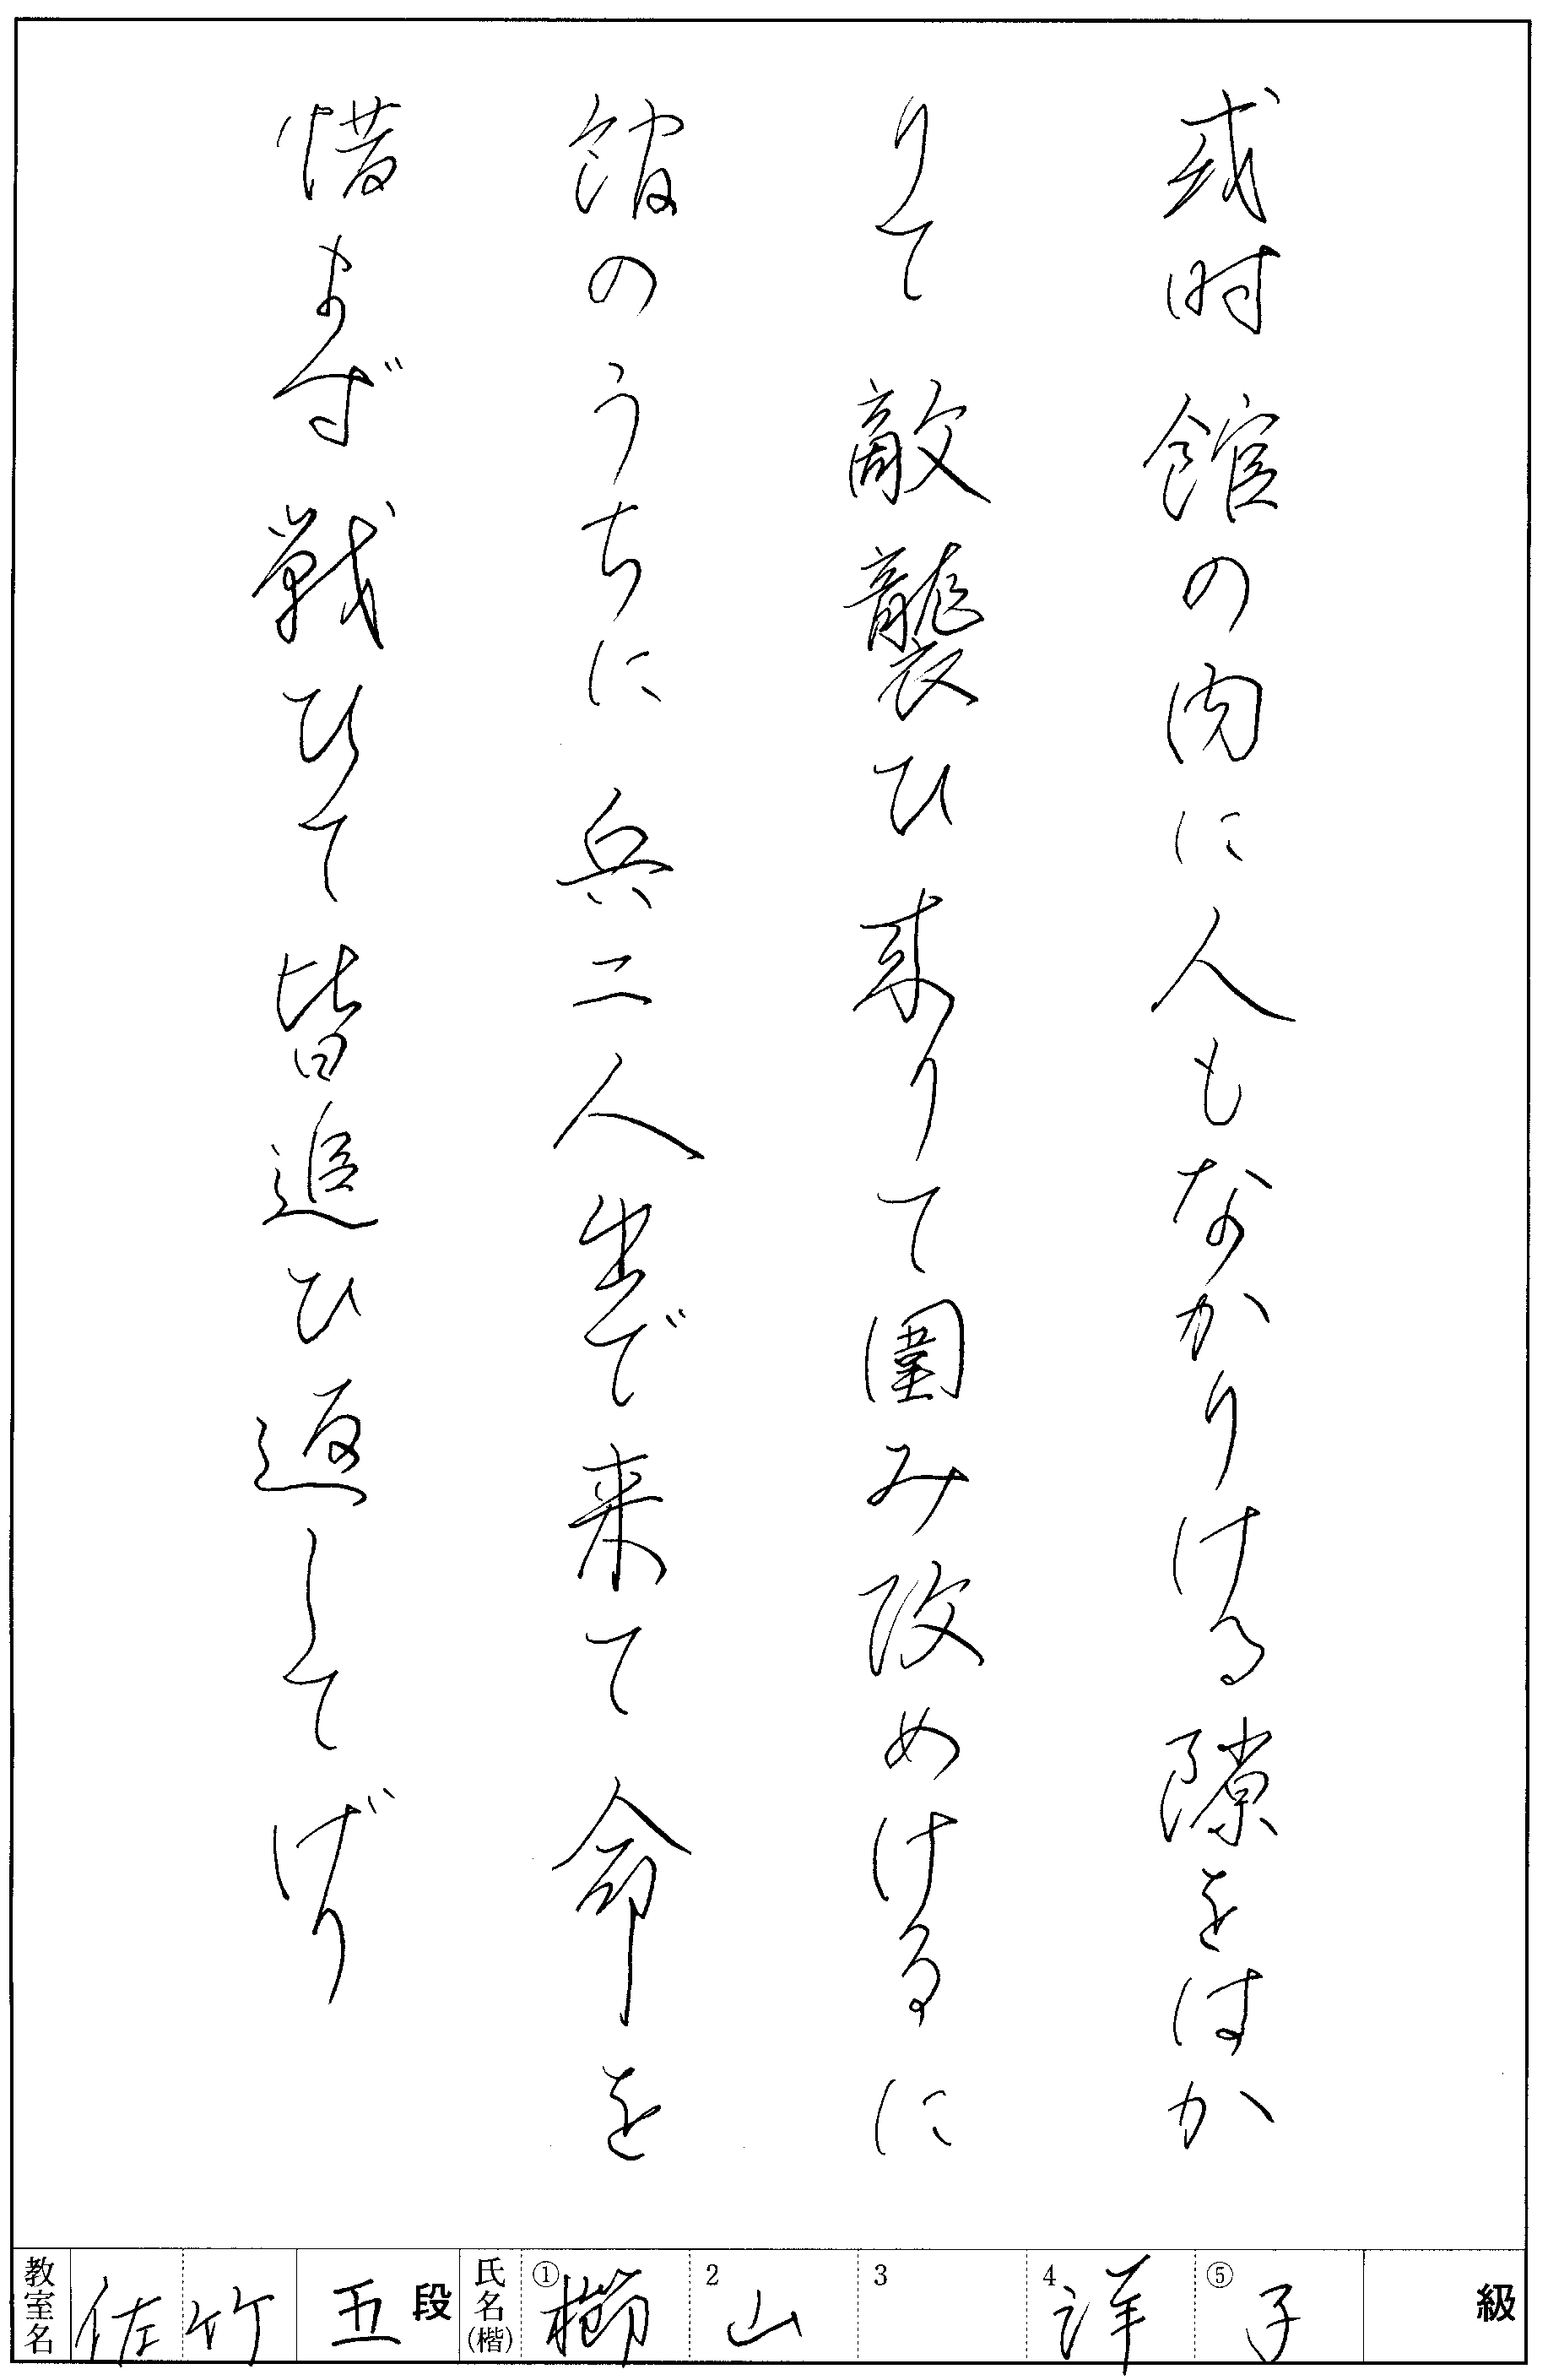 或時館の内に人もなかりける隙をはか
りて敵襲ひ来りて囲み攻めけるに
館のうちに兵二人出で来て命を
惜まず戦ひて皆追ひ返してげり
教室名 佐竹 五段 氏名(楷) ①櫛 2山 3 4洋 ⑤子 級